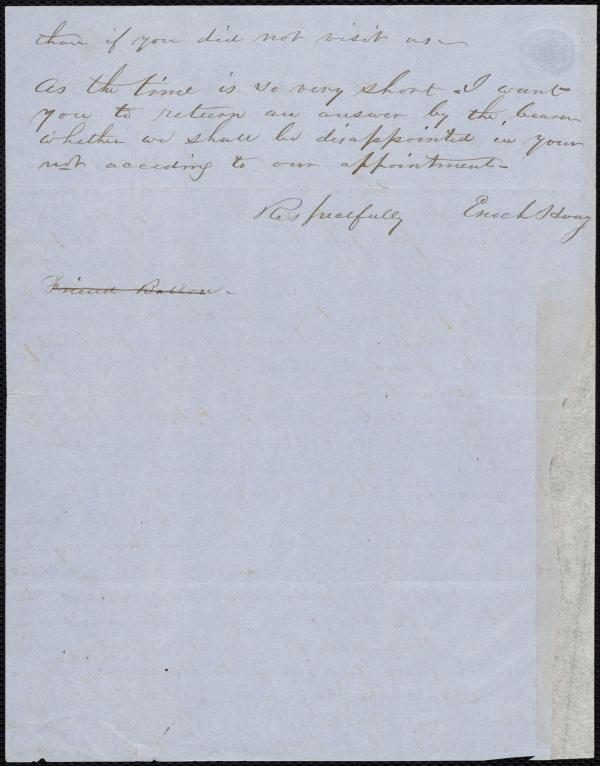 than if you did not visit us –
As the time is so very short I want
you to return an answer by the bearer
whether we shall be disappointed in your
not acceding to our appointment –
Respectfully Enoch Hoag
Friend Ballou –